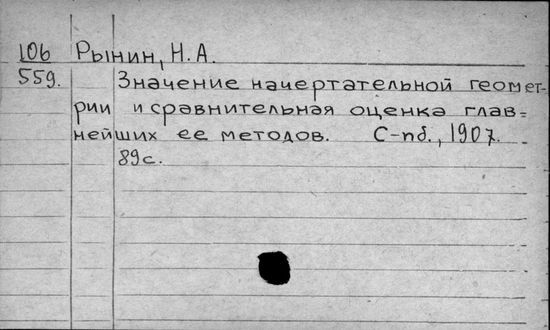 106 Рынин, Н.А.
559. Значение начертательной геомет-
рии и сравнительная оценка глав=
нейших ее методов. С-пб., 1907.
89с.